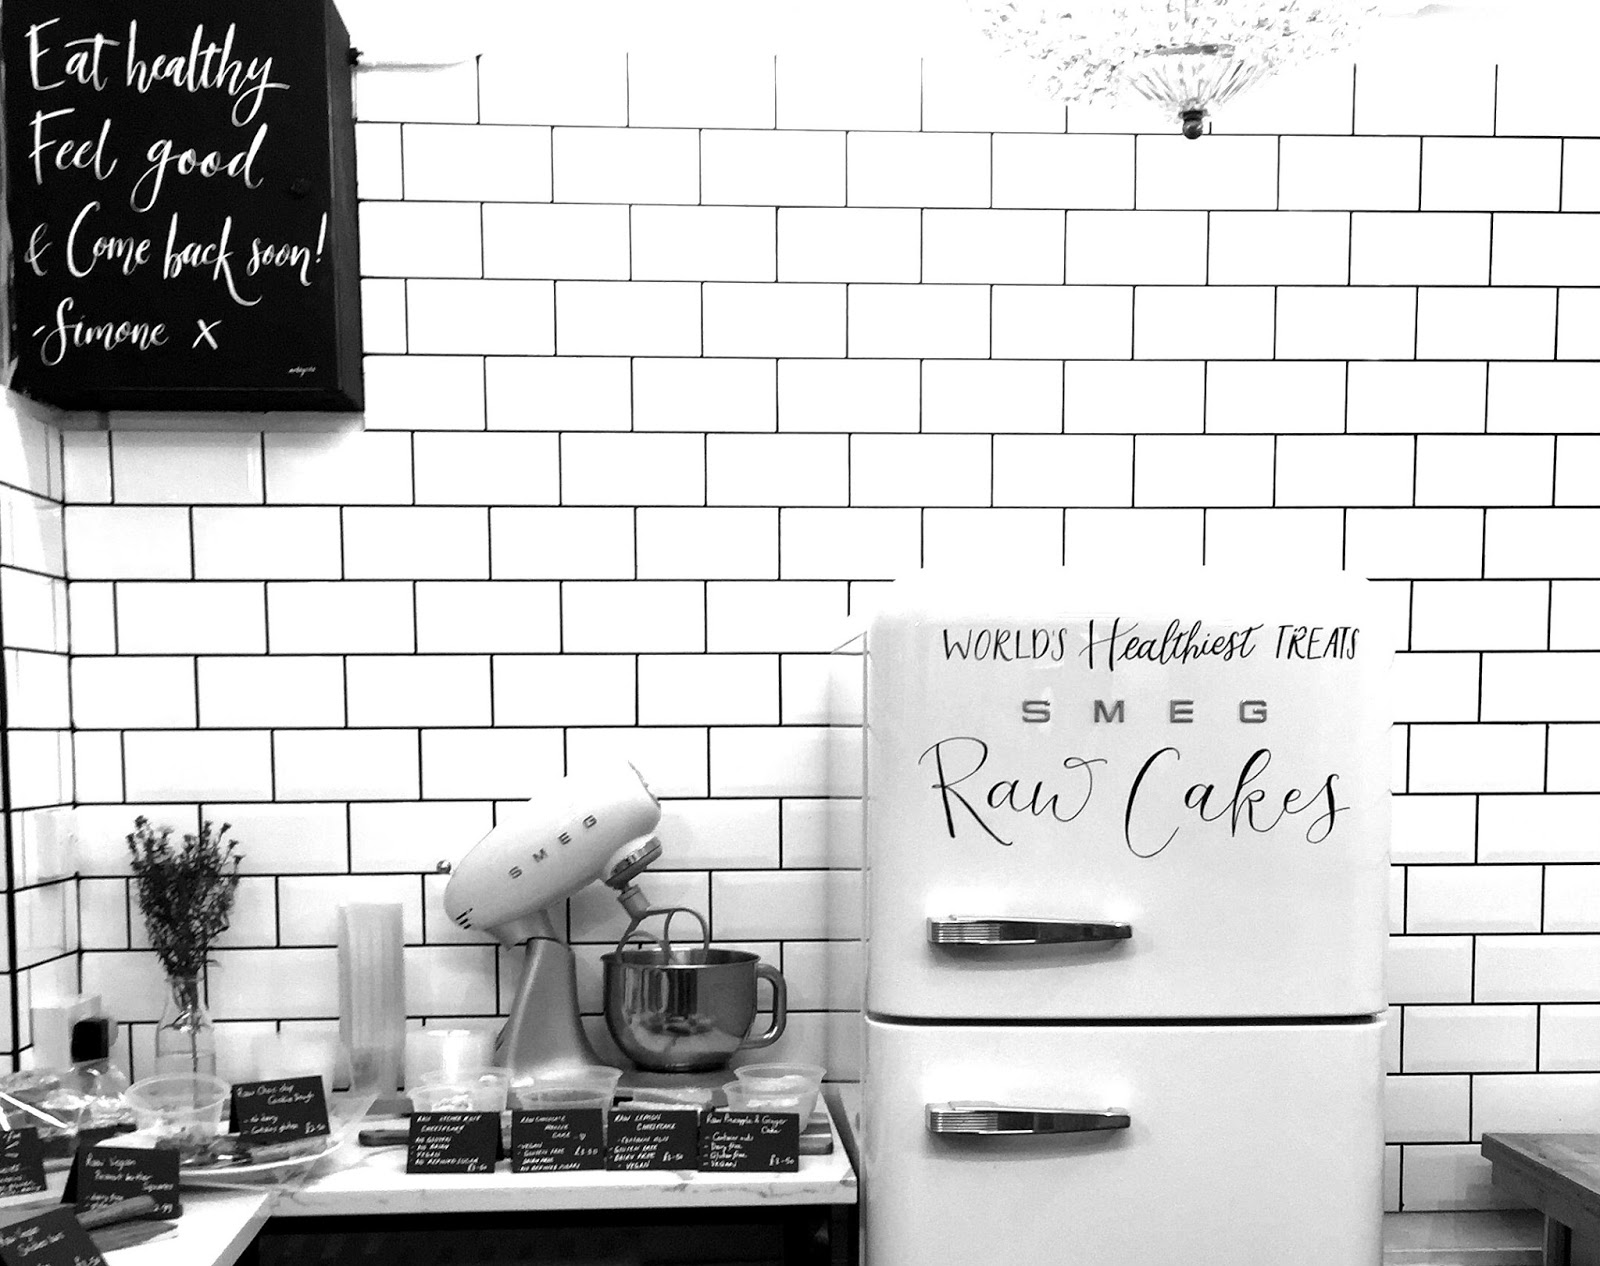 Eat healthy
Feel good
& Come back soon!
-Simone x
WORLD'S Healthiest TREATS
SMEG
Raw Cakes
SMEG
Raw Choc chip
Cookie Dough
- Contains gluten £2.50
RAW
CHEESECAKE
NO GLUTEN
NO DAIRY
VEGAN
NO REFINED SUGAR £3.50
RAW CHOCOLATE
CAKE
- VEGAN
- GLUTEN FREE £3.50
DAIRY FREE
NO REFINED SUGARS
RAW LEMON
CHEESECAKE
- CONTAINS NUTS
- GLUTEN FREE
- DAIRY FREE £3.50
- VEGAN
Raw Pineapple & Ginger
Cake
- Contains nuts
- Dairy free
- Gluten free
- VEGAN £3.50
Raw Vegan
Peanut Butter
Squares
- dairy free
Raw Vegan